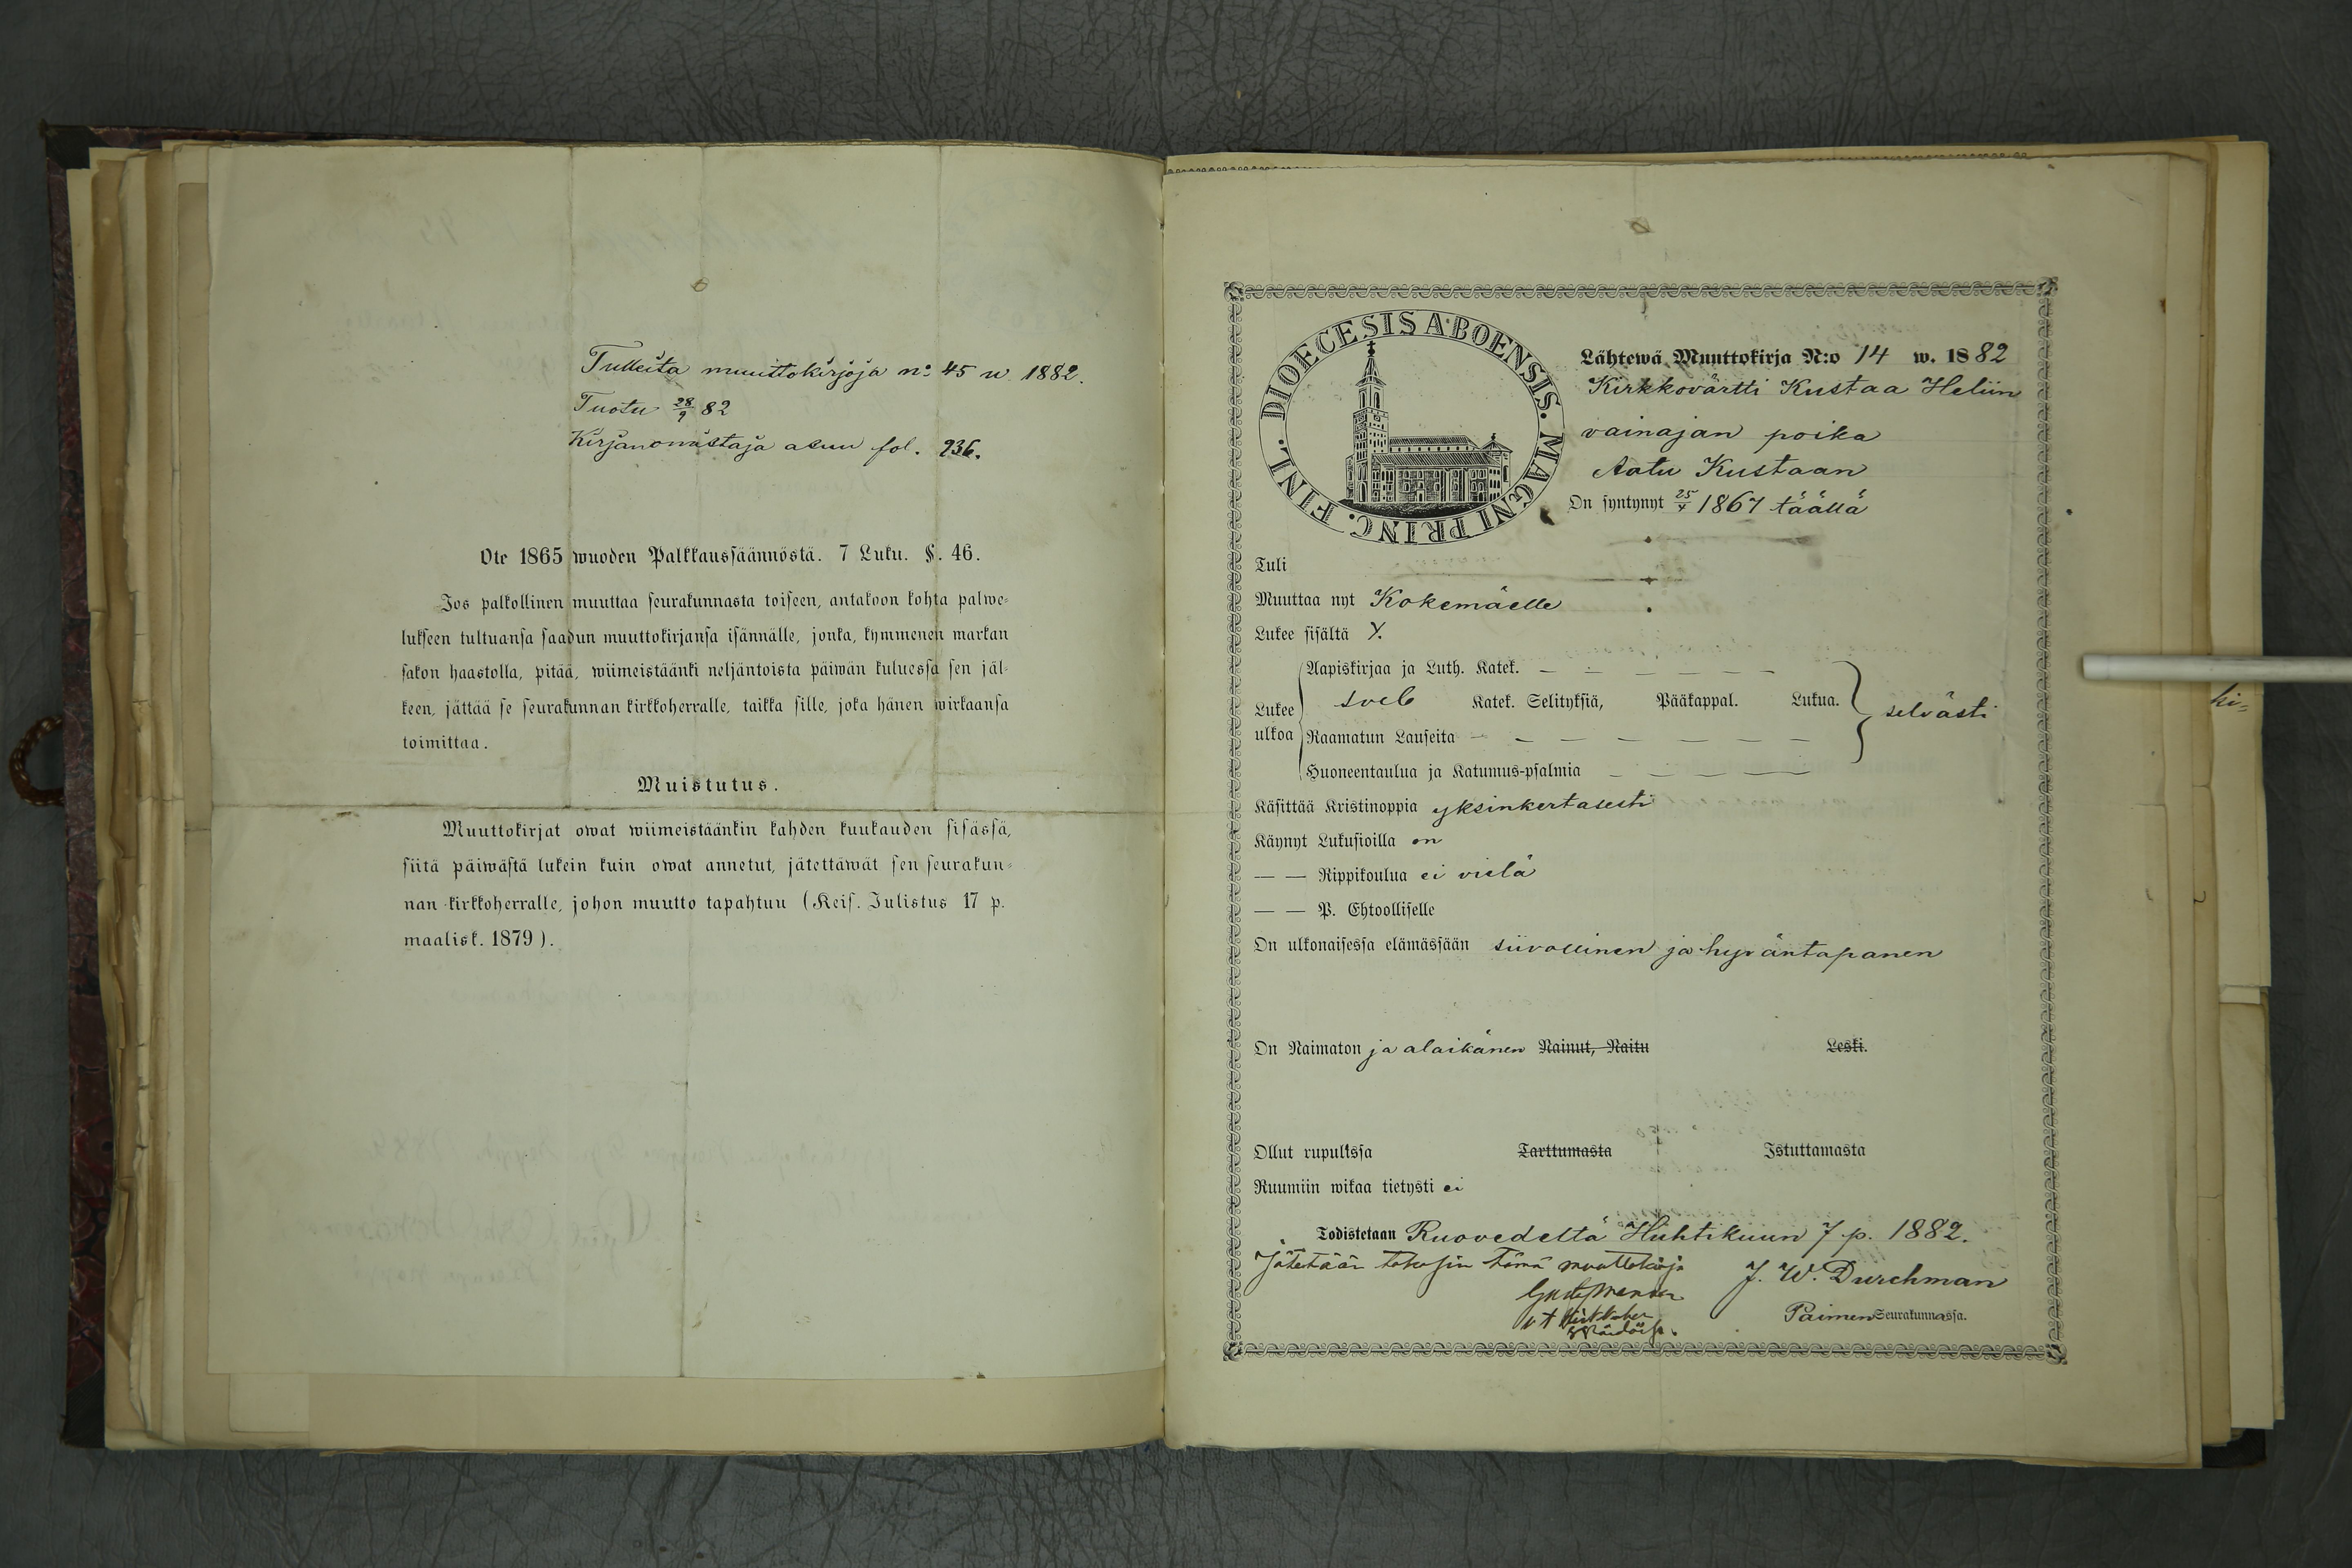 Tulleita muuttokirjoja no 45 w 1882.
Tuotu 28/9 82
Kirjanomistaja asuu fol. 936.
Ote 1865 wuoden Palkkaussäännöstä. 7 Luku. §. 46.
Jos palkollinen muuttaa seurakunnasta toiseen, antakoon kohta palwe=
lukseen tultuansa saadun muuttokirjansa isännälle, jonka, kymmenen markan
sakon haastolla, pitää, wiimeistäänki neljäntoista päiwän kuluessa sen jäl=
keen, jättää se seurakunnan kirkkoherralle, taikka sille, joka hänen wirkaansa
toimittaa.
Muistutus.
Muuttokirjat owat wiimeistäänkin kahden kuukauden sisässä,
siitä päiwästä lukein kuin owat annetut, jätettäwät sen seurakun=
nan kirkkoherralle, johon muutto tapahtuu (Keis. Julistus 17 p.
maalisk. 1879).
DIOECESIS ABOENSIS. MAGNI PRINC. FINL.
Lähtewä Muuttokirja N:o 14 w. 1882
Kirkkovärtti Kustaa Heliin
vainajan poika
Aatu Kustaan
On syntynyt 25/4 1867 täällä
Tuli
Muuttaa nyt Kokemäelle
Lukee sisältä Y.
Aapiskirjaa ja Luth. Katek. — — — — —
Lukee ulkoa
Sveb Katek. Selityksiä, Pääkappal. Lukua. selvästi
Raamatun Lauseita — — — — — — —
Huoneentaulua ja Katumus-psalmia — — — — —
Käsittää Kristinoppia yksinkertasesti
Käynyt Lukusioilla on
— — Rippikoulua ei vielä
— — P. Ehtoolliselle
On ulkonaisessa elämässään siivollinen ja hyväntapanen
On Naimaton ja alaikänen Nainut, Naitu Leski.
Ollut rupulissa Tarttumasta Istuttamasta
Ruumiin wikaa tietysti ei
Todistetaan Ruovedeltä Huhtikuun 7 p. 1882.
Jätetään takasin tämä muuttokirja
J. W. Durchman
Paimen Seurakunnassa.
ki=